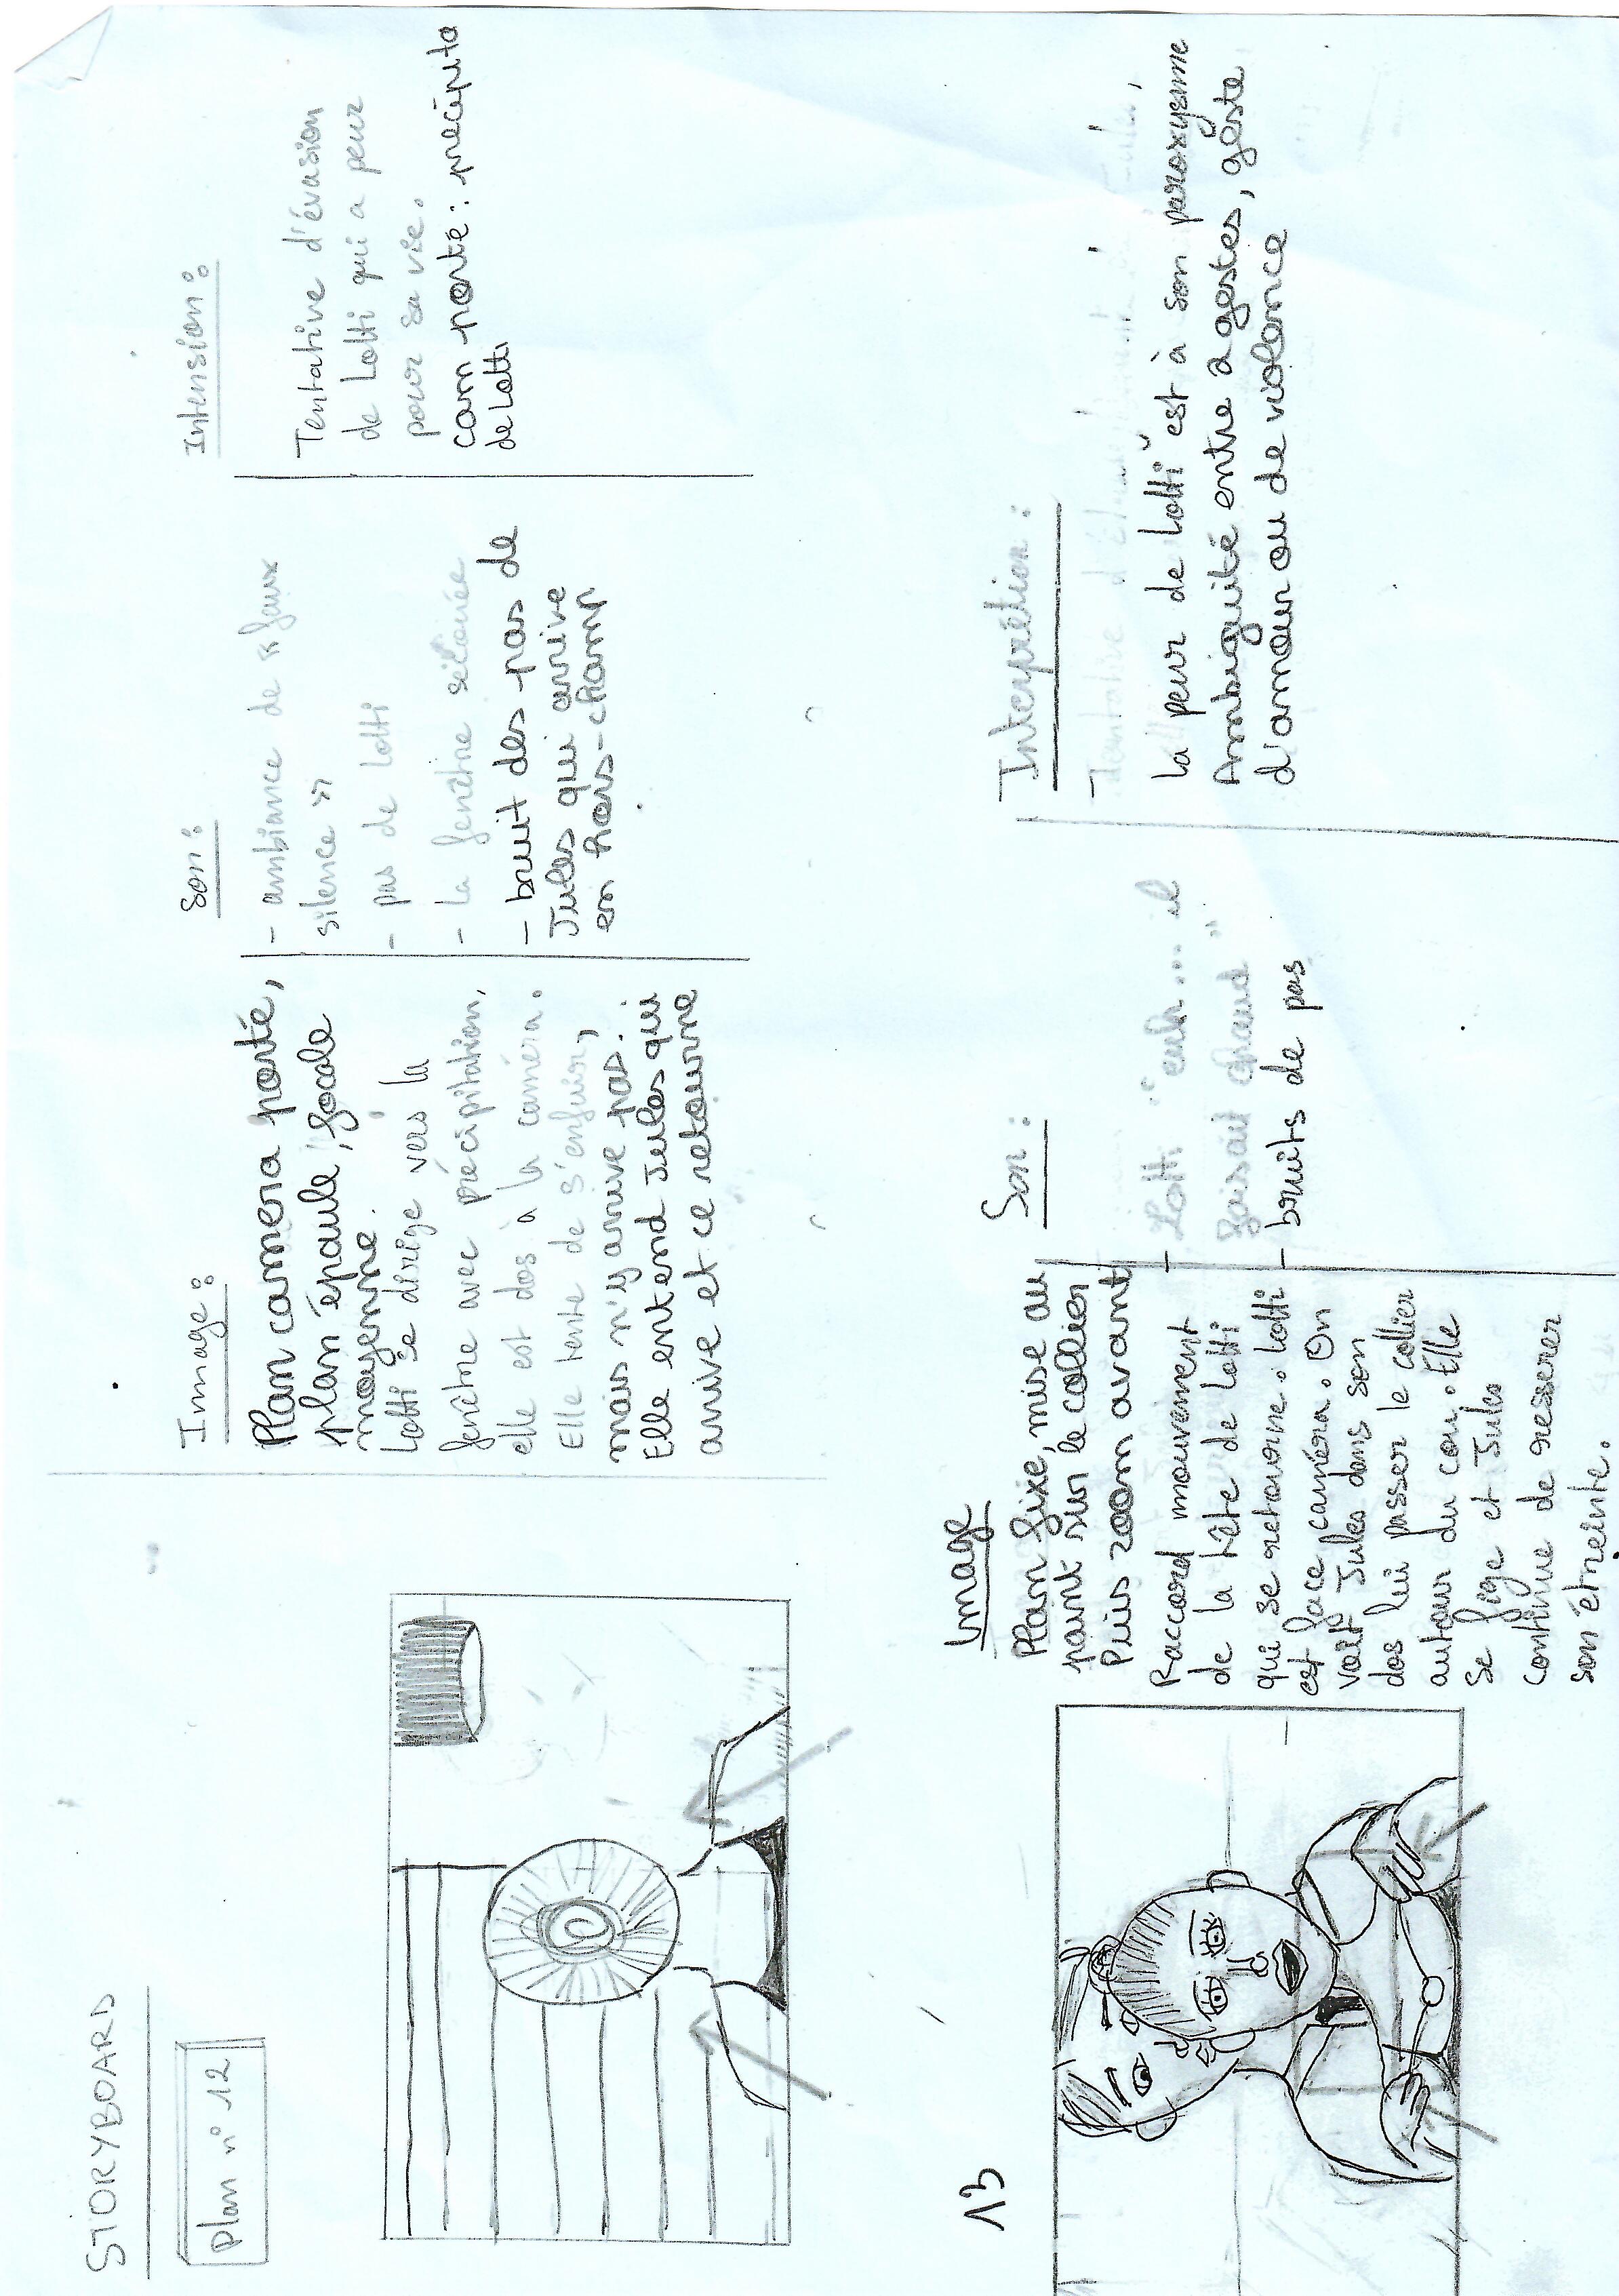 STORYBOARD
plan n° 12
Image :
Plan camera porté,
plan épaule, focale
moyenne.
Lotti se dirige vers la
fenêtre avec précipitation,
elle est dos à la caméra.
Elle tente de s'enfuir,
mais n'y arrive pas.
Elle entend Jules qui
arrive et ce retourne
Son :
- ambiance de "faux
silence"
- pas de Lotti
- la fenêtre secouée
- bruit des pas de
Jules qui arrive
en hors-champ
Intension :
Tentative d'évasion
de Lotti qui a peur
pour sa vie.
cam porté : précipita
de Lotti
13
Image
Plan fixe, mise au
point sur le collier
Puis zoom avant
Raccord mouvement
de la tête de Lotti
qui se retourne. Lotti
est face caméra. On
voit Jules dans son
dos lui passer le collier
autour du cou. Elle
se fige et Jules
continue de resserer
son étreinte.
Son :
- Lotti "euh... il
faisait chaud"
- bruits de pas
Interprétion :
la peur de Lotti est à son paroxysme
Ambiguité entre a gestes, geste
d'amour ou de violence